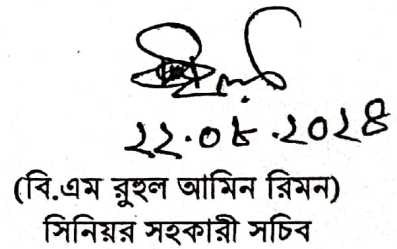 ২২.০৮.২০২৪
(বি.এম রুহুল আমিন রিমন)
সিনিয়র সহকারী সচিব